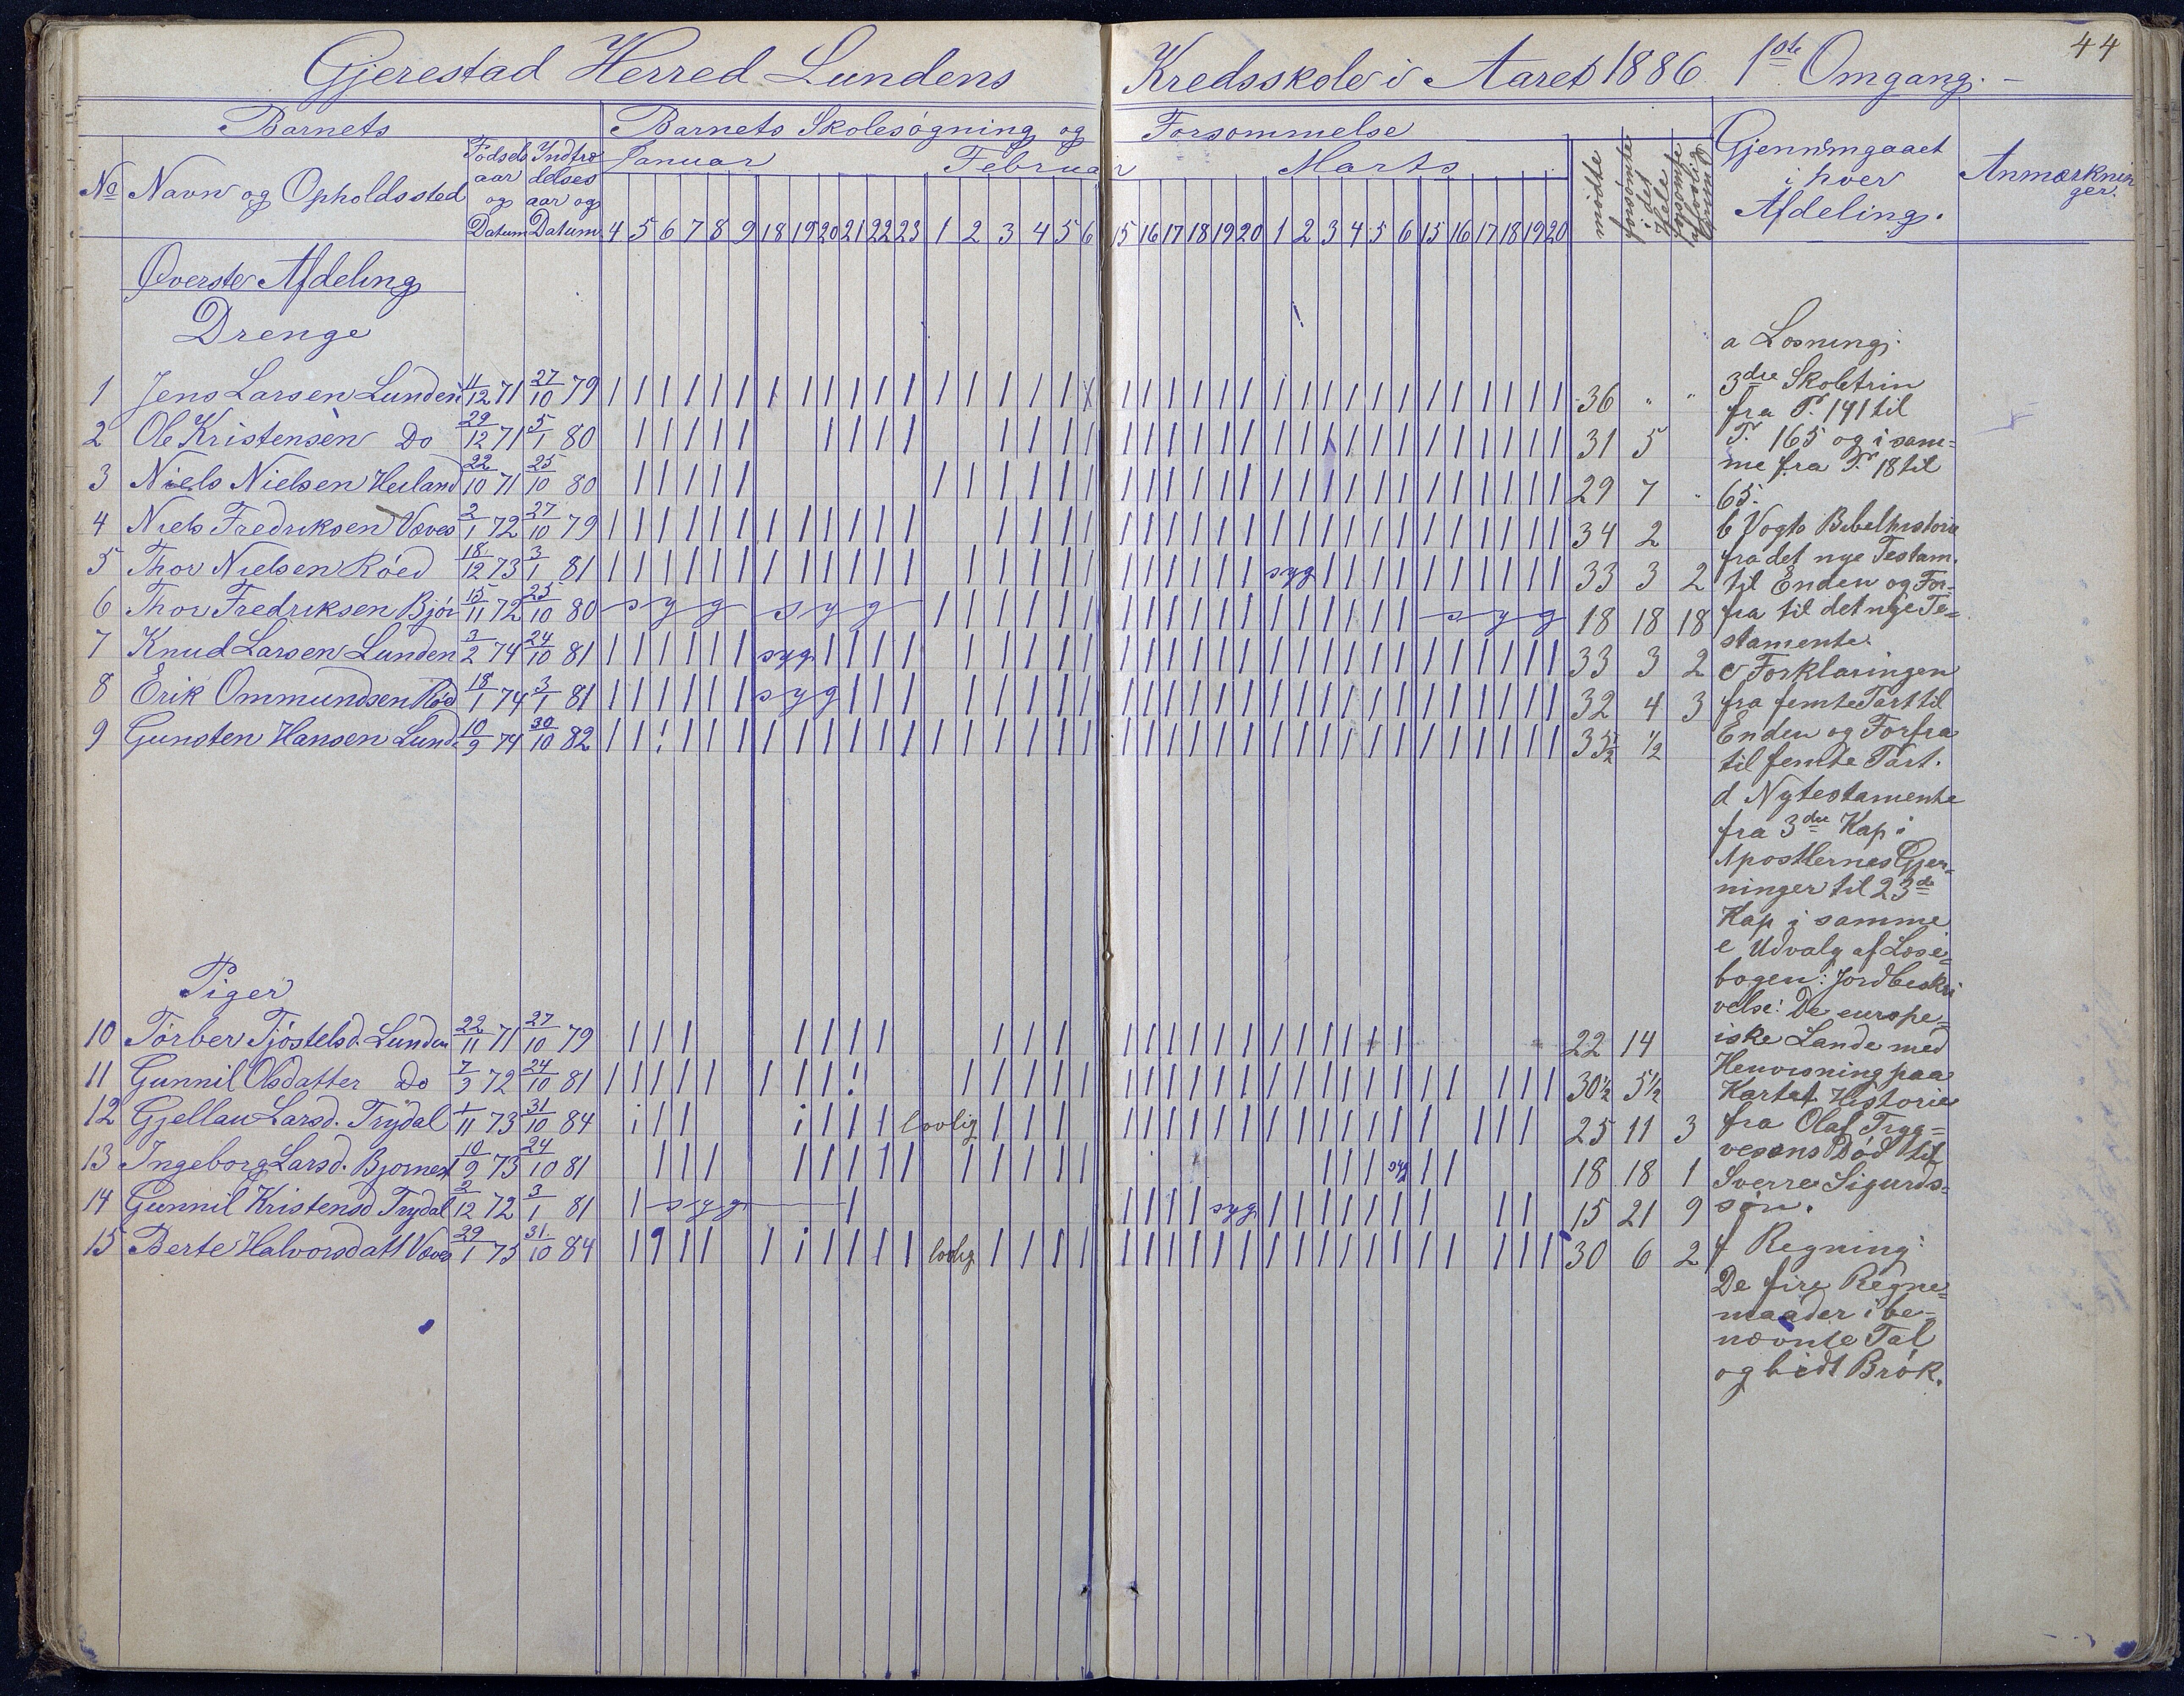 44
Gjerestad Herred Lundens Kredsskole i Aaret 1886. 1ste Omgang. –
Barnets
Barnets Skolesøgning og Forsømmelse
No Navn og Opholdssted
Fødsels aar og Datum
Indtrædelses aar og Datum
Januar Februar Marts
4 5 6 7 8 9 18 19 20 21 22 23 1 2 3 4 5 6 15 16 17 18 19 20 1 2 3 4 5 6 15 16 17 18 19 20
mødte
forsømte i det Hele
forsømte af lovlig Grund
Gjennemgaaet i hver Afdeling.
Anmærkninger.
Øverste Afdeling
Drenge
1 Jens Larsen Lunden 4/12 71 27/10 79 36 " "
2 Ole Kristensen Do 29/12 71 5/1 80 31 5
3 Niels Nielsen Heiland 22/10 71 25/10 80 29 7 "
4 Niels Fredriksen Væves 2/1 72 27/10 79 34 2
5 Thor Nielsen Røed 18/12 73 3/1 81 syg 33 3 2
6 Thor Fredriksen Bjor 15/11 72 25/10 80 syg syg syg 18 18 18
7 Knud Larsen Lunden 3/2 74 24/10 81 syg 33 3 2
8 Erik Ommundsen Rød 18/1 74 3/1 81 syg 32 4 3
9 Gunsten Hansen Lund. 10/9 74 30/10 82 35 1/2 1/2
Piger
10 Tørber Tjøstelsd. Lunden 22/11 71 27/10 79 22 14
11 Gunnil Olsdatter Do 7/3 72 24/10 81 30 1/2 5 1/2
12 Gjellau Larsd. Trydal 1/11 73 31/10 84 lovlig 25 11 3
13 Ingeborg Larsd. Bjornest 10/9 73 24/10 81 syg 18 18 1
14 Gunnil Kristensd Trydal 2/12 72 3/1 81 syg syg 15 21 9
15 Berte Halvorsdatt Væves 29/1 75 31/10 84 lovlig 30 6 2
a Læsning:
3die Skoletrin
fra P. 141 til
P. 165 og i sam=
me fra P. 18 til
65.
b Vogts Bibelhistorie
fra det nye Testam.
til Enden og For-
fra til det nye Te=
stamente.
c Forklaringen
fra femte Part til
Enden og Forfra
til femte Part.
d Nytestamente
fra 3die Kap i
Apostlernes Gjer=
ninger til 23de
Kap i samme
e Udvalg af Læse=
bogen: Jordbeskri
velse: De europæ=
iske Lande med
Henvisning paa
Kartet. Historie
fra Olaf Tryg=
vesøns Død til
Sverre Sigurds=
søn.
f Regning:
De fire Regne=
maader i be=
nævnte Tal
og lidt Brøk.